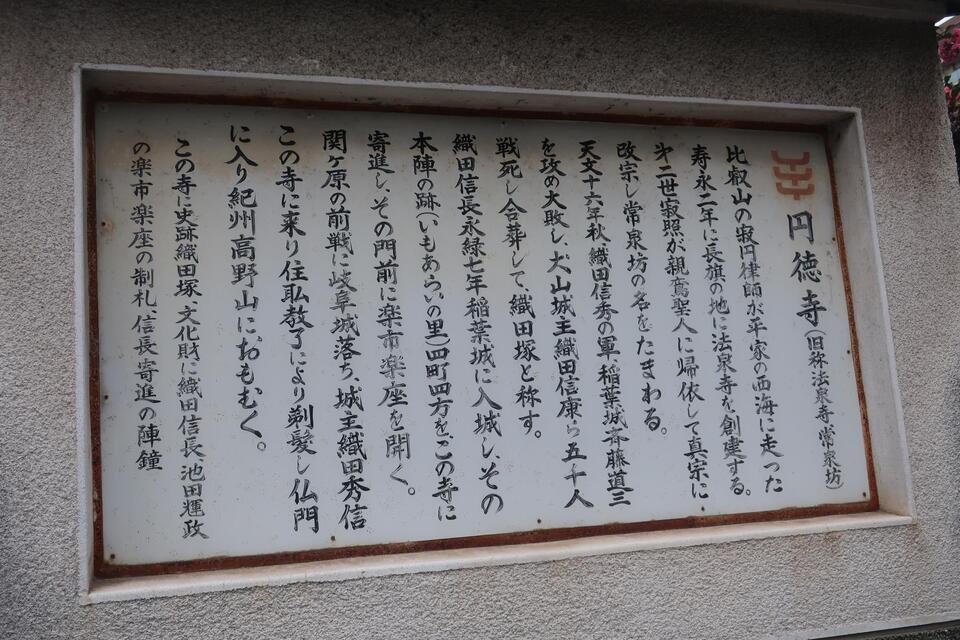 円徳寺(旧称法泉寺常泉坊)
比叡山の寂円律師が平家の西海に走った
寿永二年に長旗の地に法泉寺を創建する。
オ二世寂照が親鸞聖人に帰依して真宗に
改宗し常泉坊の名をたまわる。
天文十六年秋、織田信秀の軍、稲葉城斉藤道三
を攻め大敗し、犬山城主織田信康ら五千人
戦死し合葬して、織田塚と称す。
織田信長永緑七年稲葉城に入城し、その
本陣の跡(いもあらいの里)四町四方をこの寺に
寄進し、その門前に楽市楽座を開く。
関ヶ原の前戦に岐阜城落ち、城主織田秀信
この寺に来り住職教了により剃髪し仏門
に入り紀州高野山に、おもむく。
この寺に史跡織田塚、文化財に織田信長、池田輝政
の楽市楽座の制札、信長寄進の陣鐘